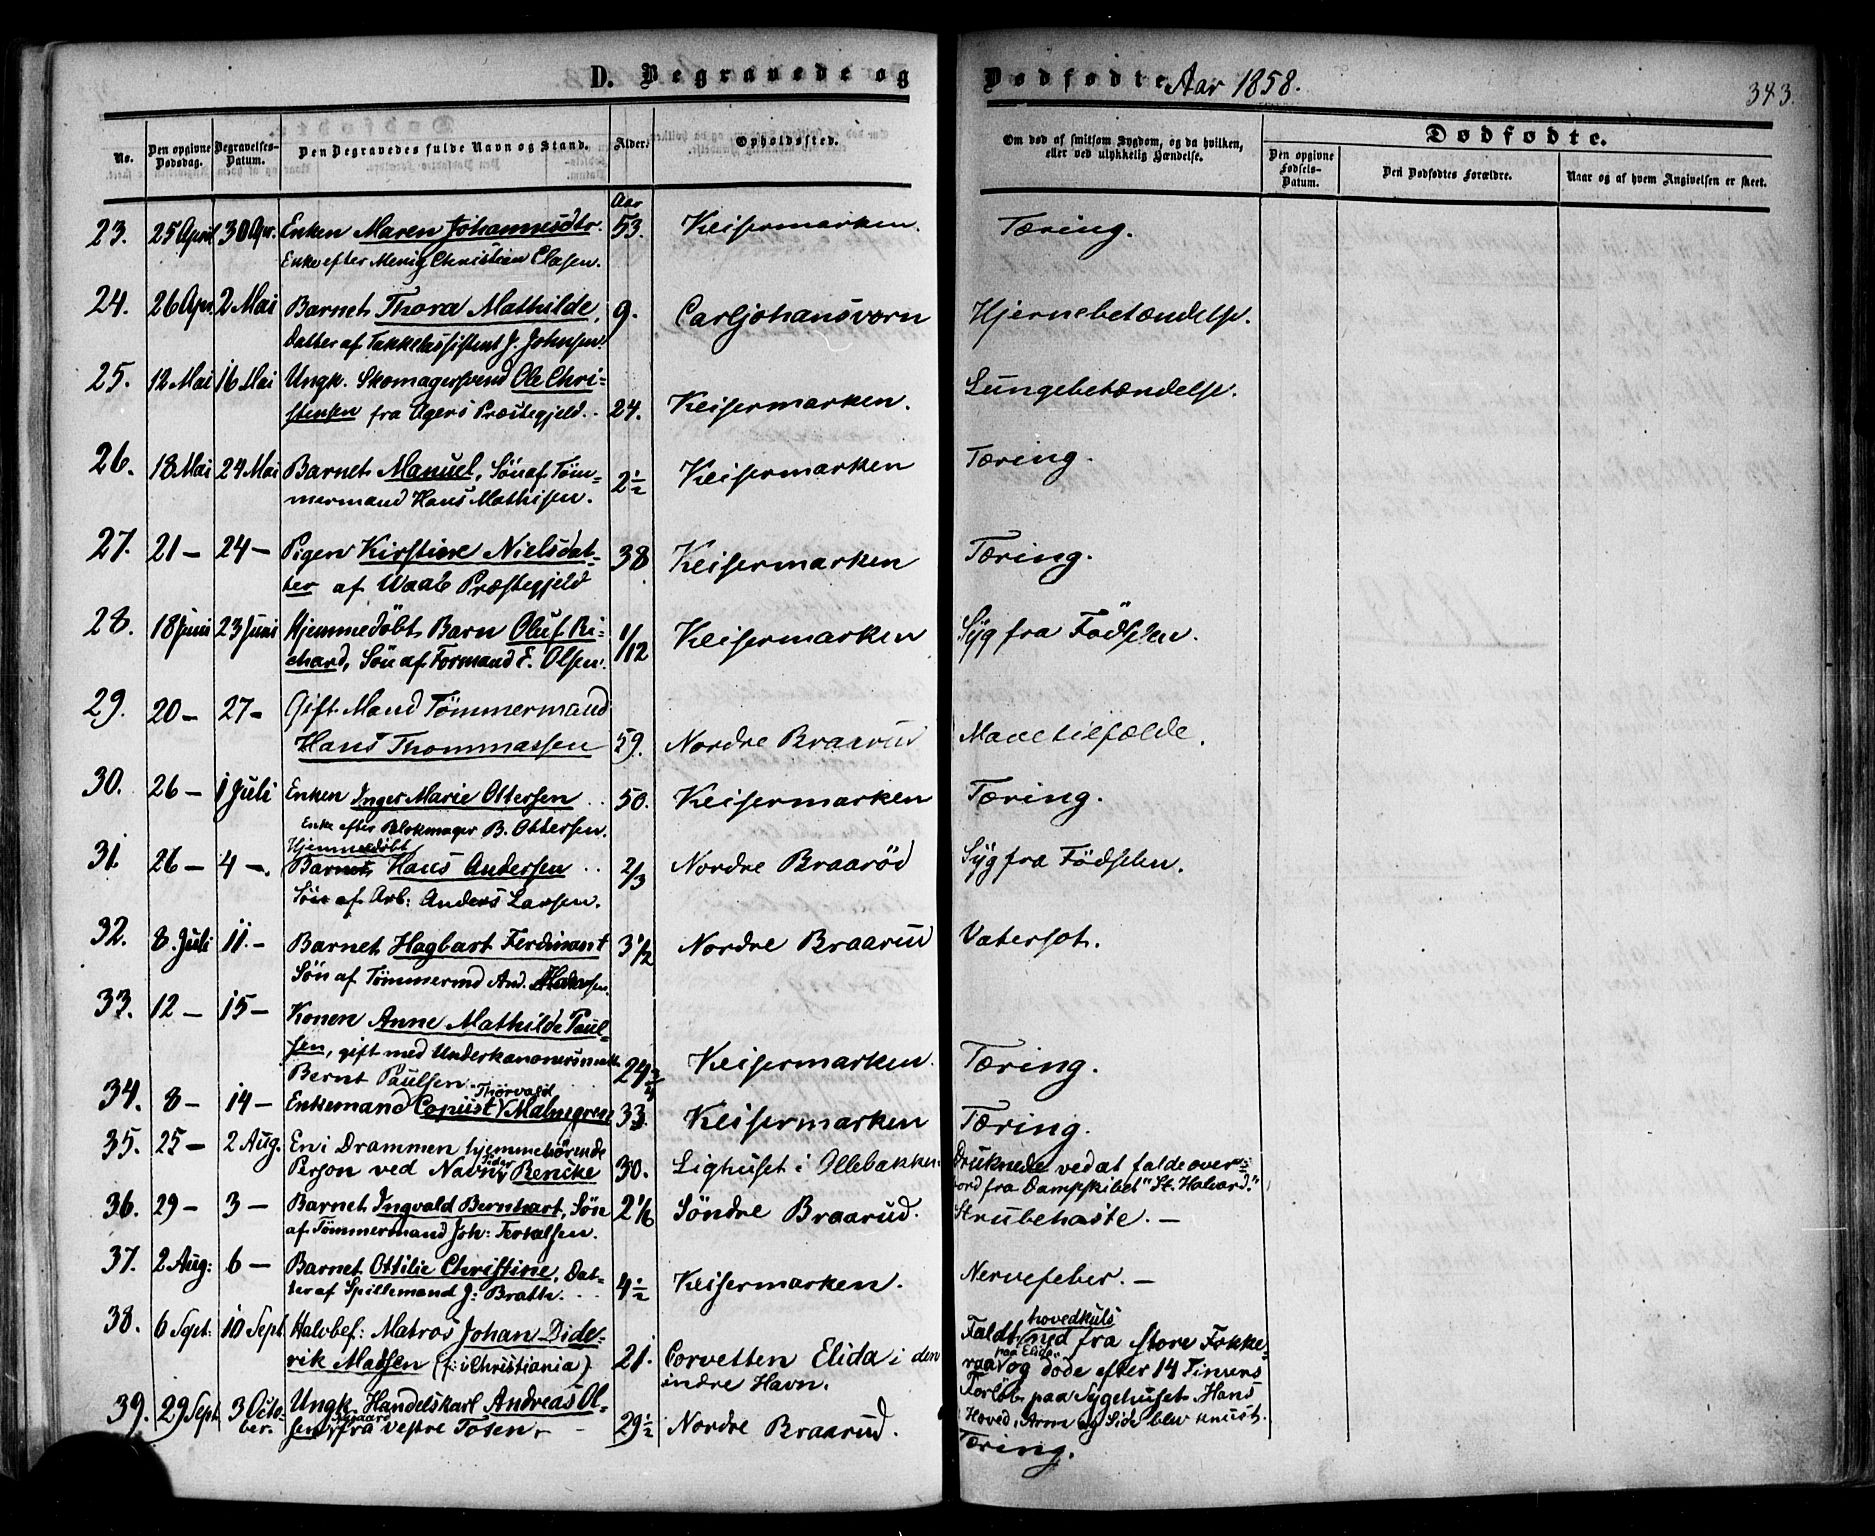 D. Begravede og Dødfødte Aar 1858. 343.
No. Den opgivne Dødsdag. Begravelses-Datum. Den Begravedes fulde Navn og Stand. Alder. Opholdssted. Om død af smitsom Sygdom, og da hvilken, eller ved ulykkelig Hændelse. Dødfødte.
Den opgivne Fødsels-Datum. Den Dødfødtes Forældre. Naar og af hvem Angivelsen er skeet.
Aar
23. 25 April 30 Apr. Enken Maren Johannesdtr. 53. Keisermarken. Tæring.
Enke efter Menig Christian Clasen.
24. 26 Apr. 2 Mai Barnet Thora Mathilde, 9. Carljohansvorn Hjernebetændelse.
Datter af Takkelassistent J. Johnsen.
25. 12 Mai 16 Mai Ungk. Skomagersvend Ole Chri-
stensen fra Agers Præstegjeld. 24. Keisermarken. Lungebetændelse.
26. 18 Mai 24 Mai Barnet Manuel, Sön af Töm-
mermand Hans Mathisen. 2½ Keisermarken Tæring.
27. 21 – 24 – Pigen Kirstine Nielsdat- 38 Keisermarken Tæring.
ter af Præstegjeld
28. 18 Juni 23 Juni Hjemmedöbt Barn Oluf Ri- 1/12 Keisermarken Syg fra Födselen.
chard, Sön af Formand E. Olsen.
29. 20 – 27 – Gift Mand Tömmermand
Hans Thommassen 59. Nordre Braarud Mavetilfælde.
30. 26 – 1 Juli Enken Inger Marie Ottersen 50. Keisermarken Tæring.
Enke efter Blokmager B. Ottersen.
31. 26 – 4 –. Hjemmedöbt
Barnet Hans Andersen 2/3 Nordre Braaröd Syg fra Födselen.
Sön af Arb: Anders Larsen.
32. 8. Juli 11. – Barnet Hagbart Ferdinant 3½ Nordre Braarud Vatersot.
Sön af Tömmermd And.
33. 12 – 15 – Konen Anne Mathilde Paul-
sen, gift med Underkanonersmath
Bernt Paulsen. 24 Keisermarken. Tæring.
34. 8 – 14 – Enkemand Thorvald Malmegreen 33. Keisermarken Tæring.
35. 25 – 2 Aug. En i Drammen hjemmehörende
Person ved Navn Peder Rencke 30. Lighuset i Ollebakken. Druknede ved at falde over
bord fra Dampskibet "St. Halvard."
36. 29 – 3 – Barnet Ingvald Bernhart, Sön 2 1/6 Söndre Braarud. Strubehoste. –
af Tömmermand Joh:
37. 2 Aug: 6 – Barnet Ottilie Christine, Dat-
ter af Spillemand J: Brath. 4½ Keisermarken. Nervefeber. –
38. 6 Sept: 10 Sept Halvbef: Matros Johan Dide-
rik Madsen (f: i Christiania) 21. Corvetten Elida i den
indre Havn. Faldt hovedkuls ned fra store Fokke-
raa paa "Elida" og döde efter 14 Timers
Forløb paa Sygehuset. Hans
Hoved, Arm og Side blev knust.
39. 29 Sept 3 Octo-
ber. Ungk. Handelskarl Andreas Ol-
sen fra Vestre Tosen. – 29½ Nordre Braarud. Tæring.